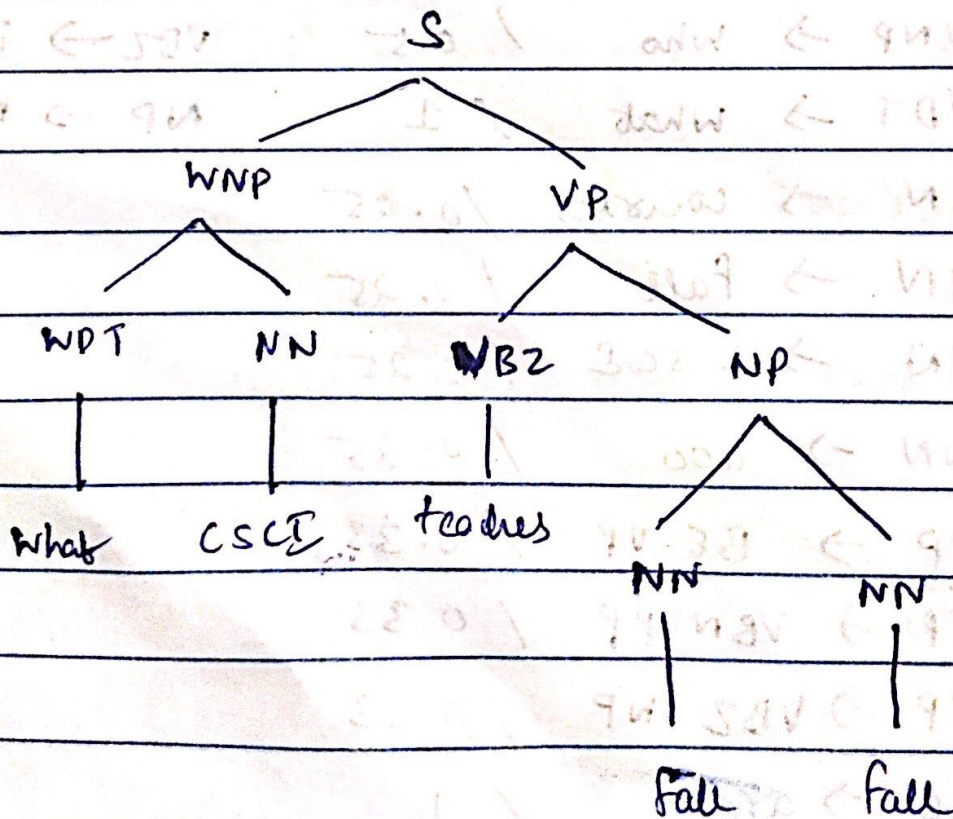 S
WNP VP
WDT NN VBZ NP
What CSCI teaches
NN NN
Fall Fall